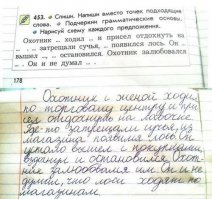 453. • Спиши. Напиши вместо точек подходящие
слова. • Подчеркни грамматические основы.
• Нарисуй схему каждого предложения.
Охотник ... ходил ... и присел отдохнуть на
... затрещали сучья, ... появился лось. Он
вышел ... остановился. Охотник залюбовался
... Он и не думал ... .
178
Охотник с женой ходил
по торговому центру и при-
сел отдохнуть на лавочке.
Где-то затрещали сучья, из
магазина появился лось. Он
вышел с покупками,
и остановился. Охот-
ник залюбовался им. Он и не
думал, что лоси ходят по
магазинам.